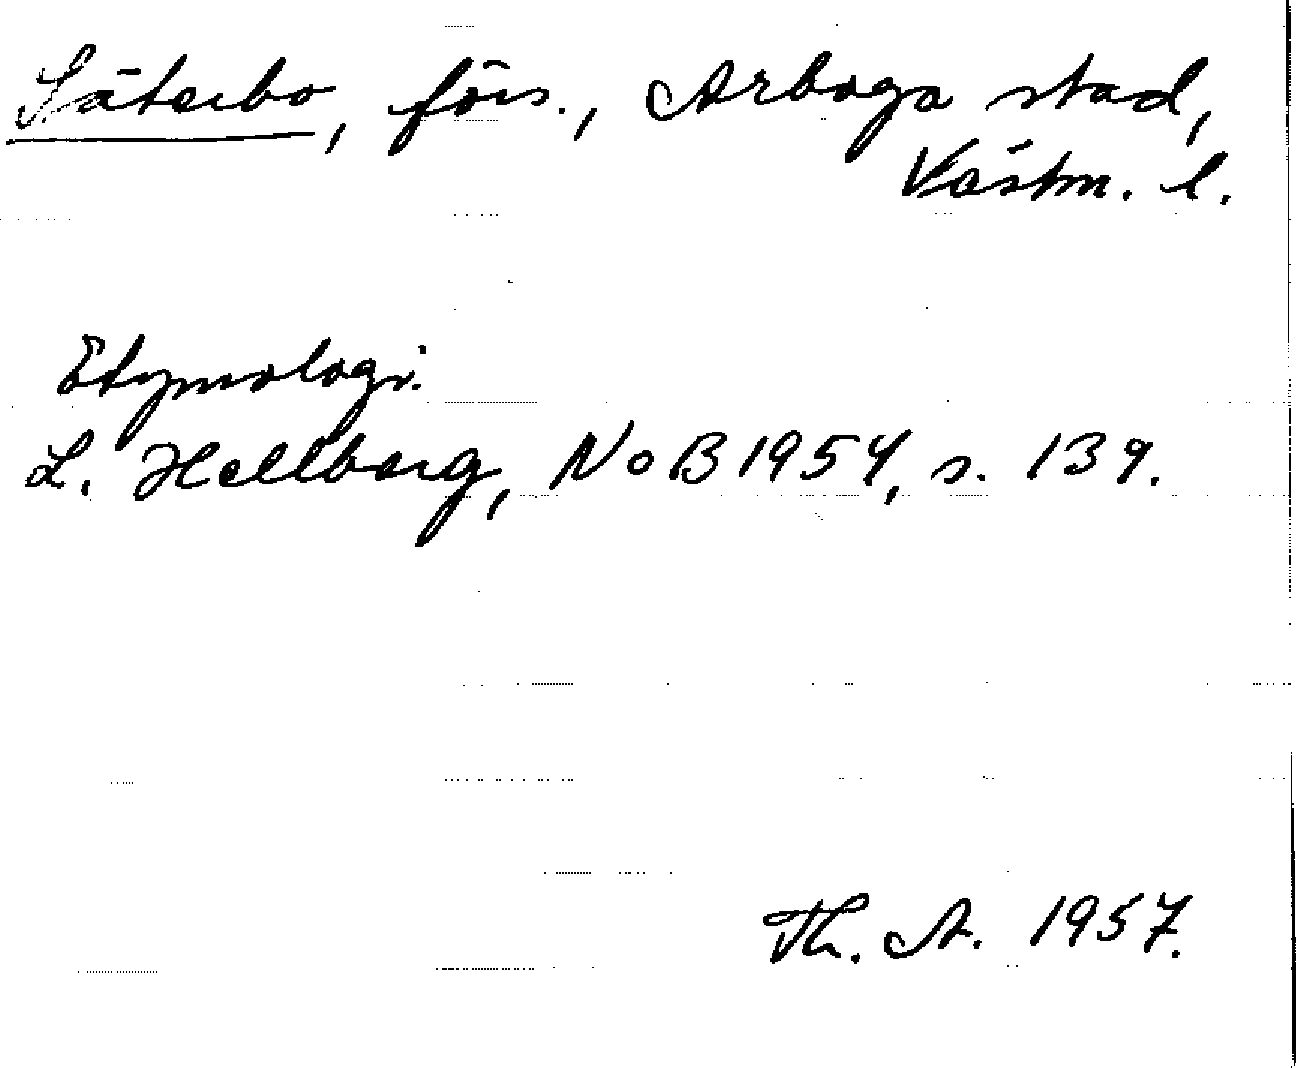 Säterbo, förs., Arboga stad,
Västm. l.
Etymologi.
L. Hellberg, NoB 1954, s. 139.
Th. A. 1957.